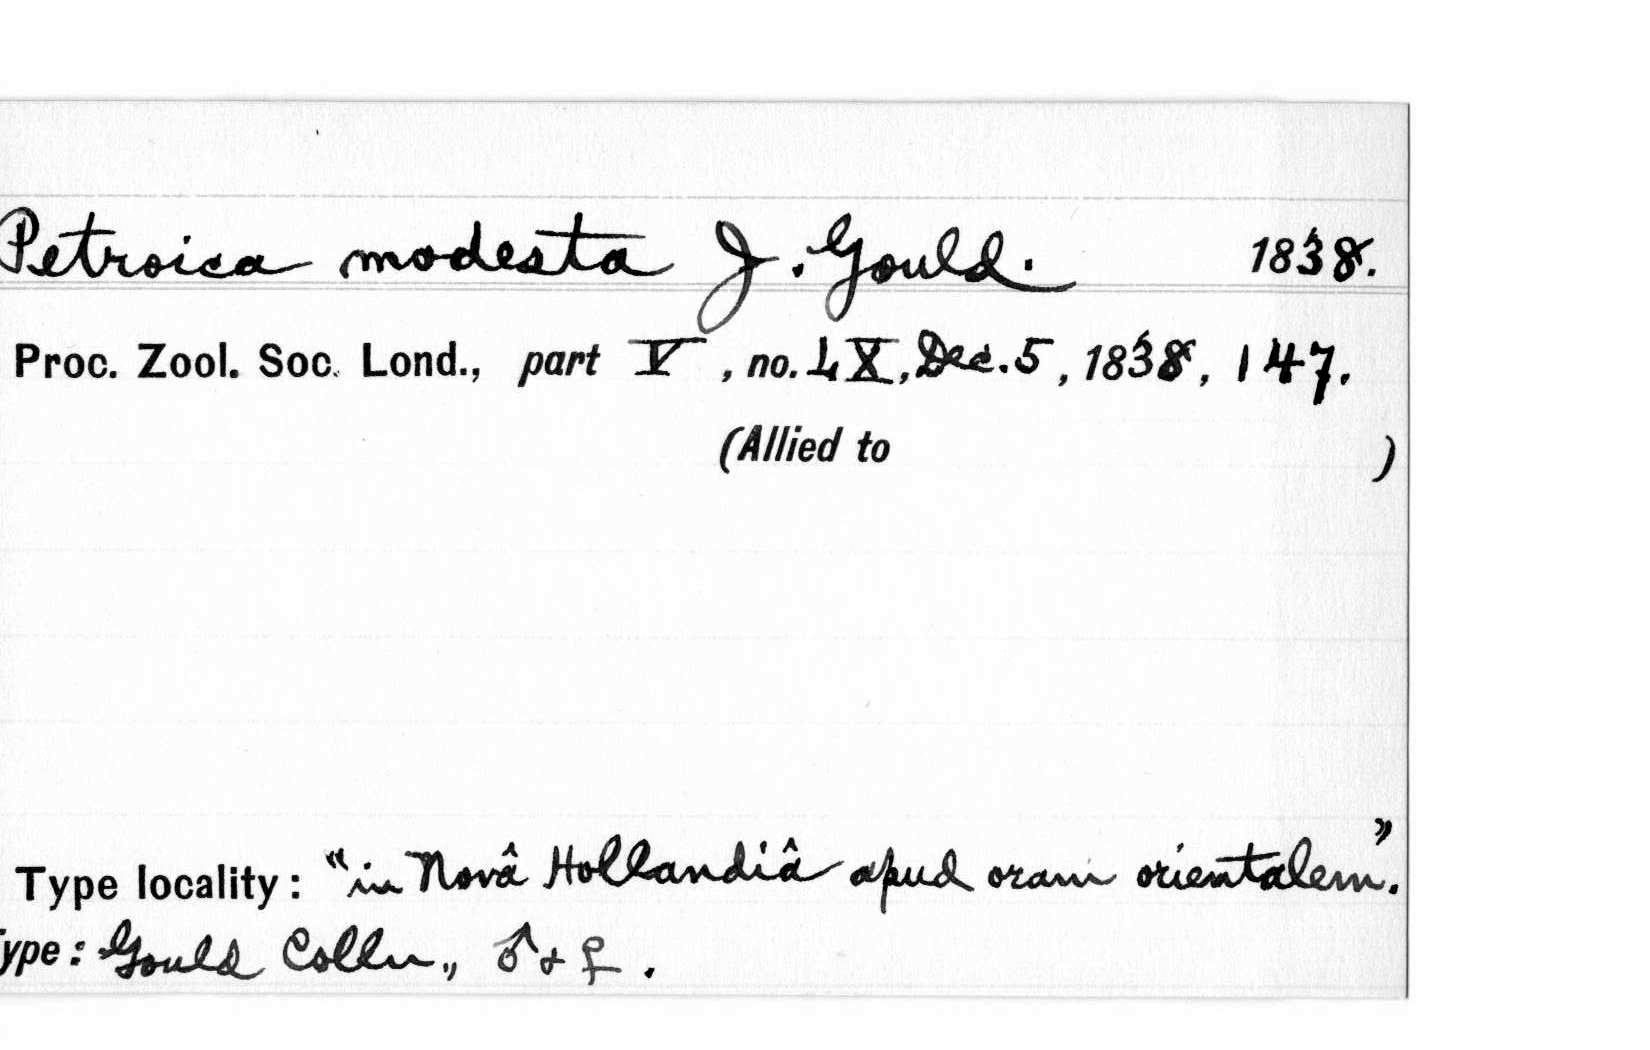 Petroica modesta J. Gould. 1838.
Proc. Zool. Soc. Lond., part V, no. LX, Dec. 5, 1838, 147.
(Allied to )
Type locality: "in Novâ Hollandiâ apud oram orientalem."
ype: Gould Colln., ♂ & ♀.